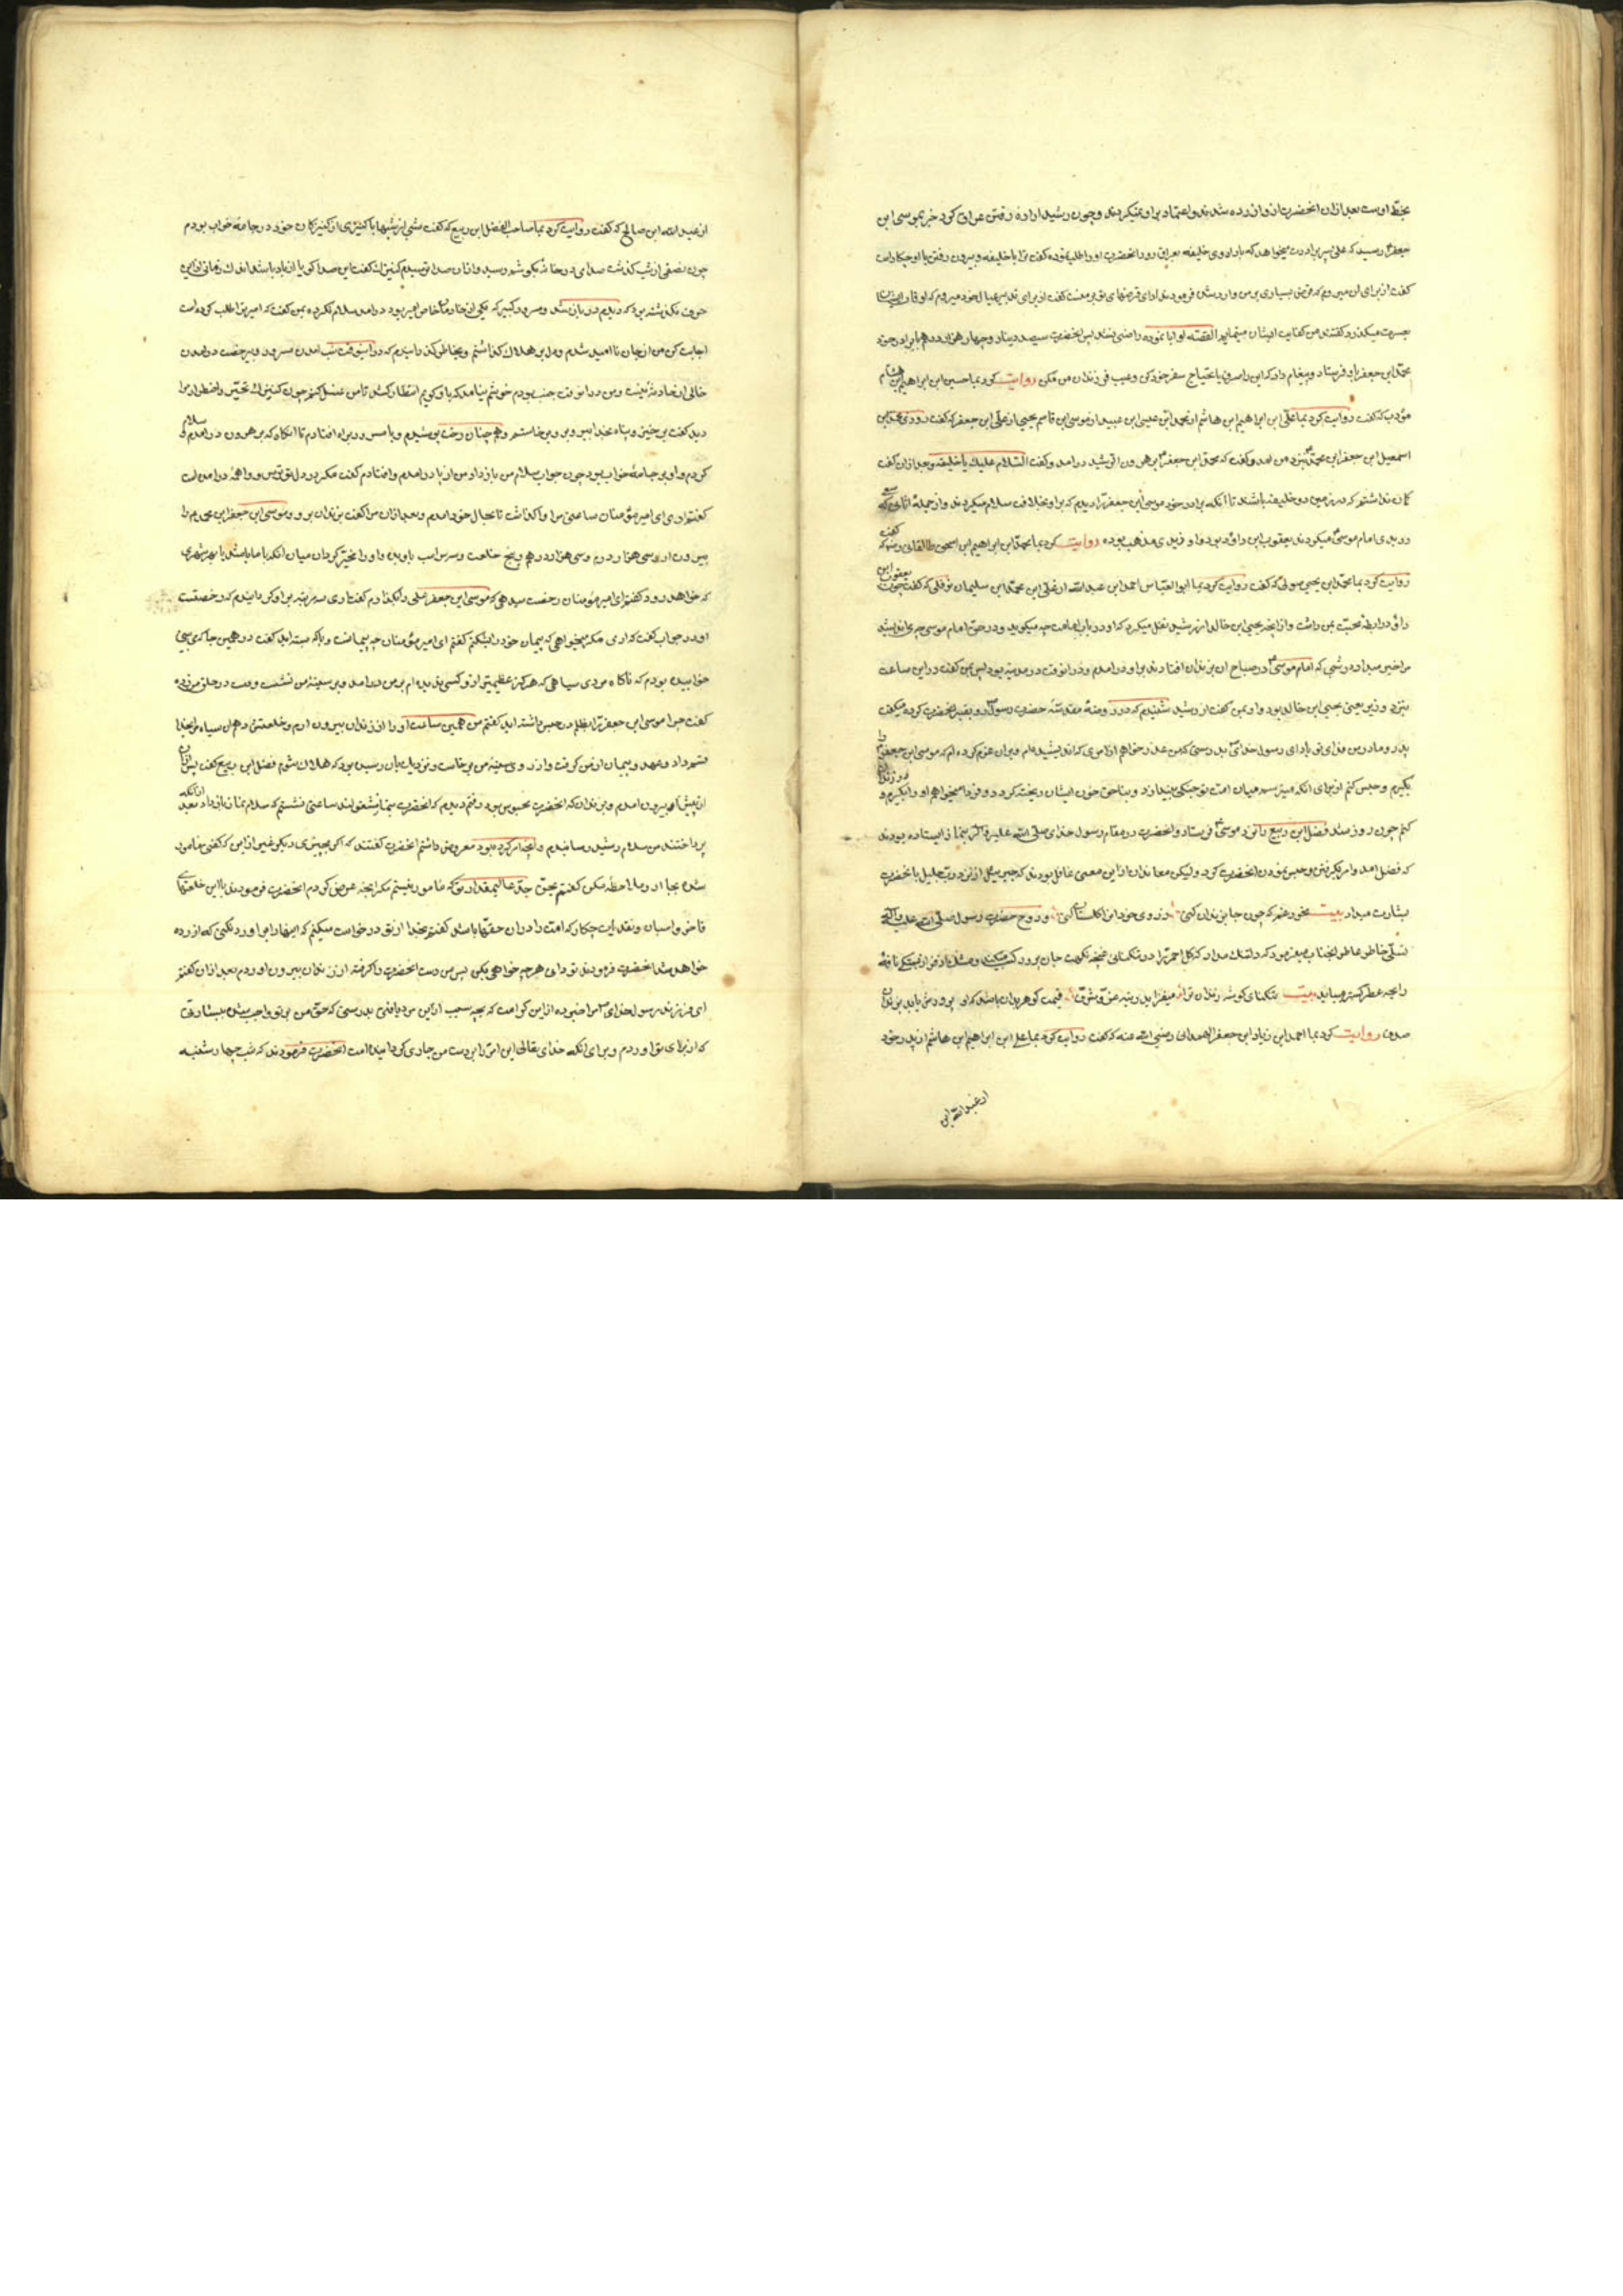 بخط اوست بعد ازان انحضرت ازو ازرده شدند و اعتماد براو نمیکردند و چون رشید اراده رفتن عراق کرد خبر بموسی ابن
جعفر رسید که علی پسر برادرت میخواهد که با خلیفه بعراق رود انحضرت او را طلب نموده گفت ترا با خلیفه و بیرون رفتن با او چکار است
گفت از برای ان میروم که قرض بسیاری بر من وارد شده فرمودند ادای قرضهای تو بر منست گفت از برای تدبیر عیال خود میروم که اوقات
بعسرت میکذرد گفتند من کفایت ایشان مینمایم القصه او ابا نموده راضی نشد پس انحضرت سیصد دینار و چهار هزار درهم با برادر خود
محمد ابن جعفر باو فرستاد و پیغام داد که این را صرف مایحتاج سفر خود کن و سعی در خون من مکن روایت کرد بما حسین ابن ابراهیم ابن هشام
مؤدب که گفت روایت کرد بما علی ابن ابراهیم ابن هاشم از محمد ابن عیسی ابن عبید از موسی ابن قاسم بجلی از علی ابن جعفر که گفت روزی محمد ابن
اسمعیل ابن جعفر ابن محمد نزد من امد و گفت که محمد ابن جعفر بر هرون الرشید درامد و گفت السلام علیک یا خلیفه و بعد ازان گفت
گمان نداشتم که در زمین دو خلیفه باشند تا انکه برادر خود موسی ابن جعفر را دیدم که براو بخلافت سلام میکردند و از جمله انانی که سعی
در بدی امام موسی میکردند یعقوب ابن داود بود و او زیدی مذهب بوده روایت کرد بما محمد ابن ابراهیم ابن اسحق طالقانی رض که گفت
روایت کرد بما محمد ابن یحیی صولی که گفت روایت کرد بما ابو العباس احمد ابن عبد الله از علی ابن محمد ابن سلیمان نوفلی که گفت چون یعقوب ابن
داود رابطه محبت بمن داشت و از انچه یحیی ابن خالد از رشید نقل میکرد که او در باب امامت چه میکوید و در حق امام موسی چه می اندیشد
مرا خبر میداد در شبی که امام موسی در صباح ان بزندان افتادند براو درامدم و درانوقت در مدینه بود پس بمن گفت در این ساعت
نزد وزیر یعنی یحیی ابن خالد بود و او بمن گفت از رشید شنیدم که در روضه مقدسه حضرت رسول رو بقبر انحضرت کرده میکفت
پدر و مادر من فدای تو باد ای رسول خدای بدرستی که من عذر خواهم از امری که اندیشیده ام و بران عزم کرده ام که موسی ابن جعفر را
بگیرم و حبس کنم از برای انکه میترسم میان امت تو جنگی بیندازد و بناحق خون ایشان ریخته گردد و فردا میخواهم او را بگیرم و در زندان
کنم چون روز شد فضل ابن ربیع را نزد موسی فرستاد و انحضرت در مقام رسول خدای صلی الله علیه و اله بنماز ایستاده بودند
که فضل امد و امر بگرفتن و حبس نمودن انحضرت کرد و لیکن معاندان از این معنی غافل بودند که جبرییل از نزد رب جلیل بانحضرت
بشارت میداد بیت مخور غم که چون جا بزندان کنی ز روی خود انرا گلستان کنی و روح حضرت رسول صلی الله علیه و اله
تسلی خاطر عاطر انجناب میفرمود که
رایحه عطر گستر میباید بیت تنگنای گوشه زندان ترا میفزاید رتبه عز و شرف قیمت گوهر بدان باشد که او پرورش یابد بزندان
صدف روایت کرد بما احمد ابن زیاد ابن جعفر الهمدانی رضی الله عنه که گفت روایت کرد بما علی ابن ابراهیم ابن هاشم از پدر خود
از عبد الله ابن
از عبد الله ابن صالح که گفت روایت کرد بما صاحب الفضل ابن ربیع که گفت شبی از شبها با کنیزی از کنیزکان خود در جامه خواب بودم
چون نصفی از شب گذشت صدای در خانه بگوشم رسید و ازان صدا ترسیدم کنیزک گفت این صدا گویا از باد باشد اندک زمانی از این
حرف نگذشته بود که دیدم در باز شد و مسرور کبیر که یکی از خادمان خاص امیر بود درامد سلام نکرده بمن گفت که امیر ترا طلب کرده است
اجابت کن من از جان نا امید شدم و دل بر هلاک گذاشتم و بخاطر گذرانیدم که در اینوقت شب امدن مسرور و بیرخصت درامدن
خالی از حادثه نیست و من درانوقت جنب بودم خوشم نیامد که باو گویم انتظار کشد تا من غسل کنم چون کنیزک تحیر و اضطراب مرا
دید گفت برخیز و پناه بخدا ببر و برو برخاستم و همچنان رخت پوشیدم و با مسرور براه افتادم تا انگاه که بر هرون درامدم و سلام
کردم و او بر جامه خواب بود چون جواب سلام من باز داد من از پا درامدم و افتادم گفت مگر در دل تو ترس و واهمه درامده است
گفتم اری ای امیر مؤمنان ساعتی مرا واگذاشت تا بحال خود امدم و بعد ازان مرا گفت بزندان برو و موسی ابن جعفر ابن محمد را
بیرون ار و سی هزار درم و پنج خلعت و سه راس اسب باو بده و او را مخیر گردان میان انکه با ما باشد یا بهر شهری
که خواهد رود گفتم ای امیر مؤمنان رخصت میدهی که موسی ابن جعفر را بگذارم گفت اری سه مرتبه براو گردانیدم که رخصت
او در جواب گفت که اری مگر میخواهی که پیمان خود را بشکنم گفتم ای امیر مؤمنان چه پیمانست و با که بسته اید گفت در همین جا که می بینی
خوابیده بودم که ناگاه مردی سیاهی که هرگز عظیمتر ازو کسی ندیده ام بر من درامد و بر سینه من نشست و دست در حلق من زده
گفت چرا موسی ابن جعفر را بظلم در حبس داشته اید گفتم من همین ساعت او را از زندان بیرون ارم و خلعتش دهم ان سیاه مرا بخدا
قسم داد و عهد و پیمان از من گرفت و از روی سینه من برخاست و نزدیک بان رسید بود که هلاک شوم فضل ابن ربیع گفت پس ازان
از پیش او بیرون امدم و بزندان که انحضرت محبوس بود رفتم دیدم که انحضرت بنماز مشغولند ساعتی نشستم که سلام نماز باز داد بعد ازانکه
پرداختند من سلام رشید رسانیدم و انچه امر کرده بود معروض داشتم انحضرت گفتند که اگر بچیزی دیگر غیر از این که گفتی مامور
شده بجا ار و ملاحظه مکن گفتم بحق جد عالیمقدار تو که مامور نیستم مگر انچه عرض کردم انحضرت فرمودند با این خلعتهای
فاخر و اسبان و نقد ایت چکار که امت را دران حقها باشد گفتم بخدا از تو درخواست میکنم که اینها را بر او رد نکنی که ازرده
خواهد شد انحضرت فرمودند تو دانی هرچه خواهی بکن پس من دست انحضرت را گرفته از زندان بیرون اوردم بعد ازان گفتم
ای فرزند رسول خدای مرا خبر ده از این کرامت که بچه سبب از این مرد یافتی بدرستی که حق من بر تو واجب شد بسبب بشارتی
که از برای تو اوردم و برای انکه خدای تعالی این امر را بر دست من جاری گردانیده است انحضرت فرمودند که شب چهارشنبه